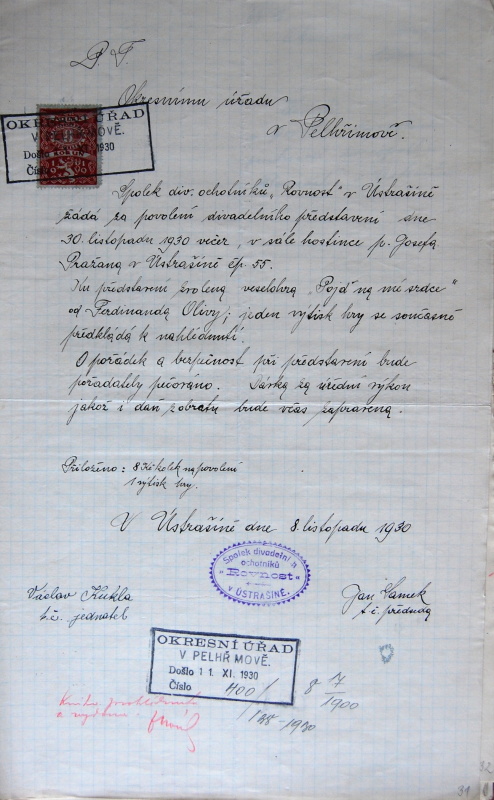 P. T.
Okresnímu úřadu
v Pelhřimově.
OKRESNÍ ÚŘAD
V PELHŘIMOVĚ.
Došlo 1930
Číslo
Spolek div. ochotníků „Rovnost" v Ústrašíně
žádá za povolení divadelního představení dne
30. listopadu 1930 večer, v sále hostince p. Josefa
Pražana v Ústrašíně čp. 55.
Ku představení zvolena veselohra „Pojď na mé srdce"
od Ferdinanda Olivy; jeden výtisk hry se současně
předkládá k nahlédnutí.
O pořádek a bezpečnost při představení bude
pořadately pečováno. Dávka za úřední výkon
jakož i daň z obratu bude včas zapravena.
Přiloženo: 8 Kč kolek na povolení
1 výtisk hry.
V Ústrašíně dne 8. listopadu 1930
Spolek divadelních
ochotníků
„Rovnost"
v ÚSTRAŠÍNĚ.
Václav Kukla
t.č. jednatel
Jan Hamek
t č předseda
OKRESNÍ ÚŘAD
V PELHŘIMOVĚ.
Došlo 11. XI. 1930
Číslo 400/
8 7/1900
/188-1930
Knihu
32
31